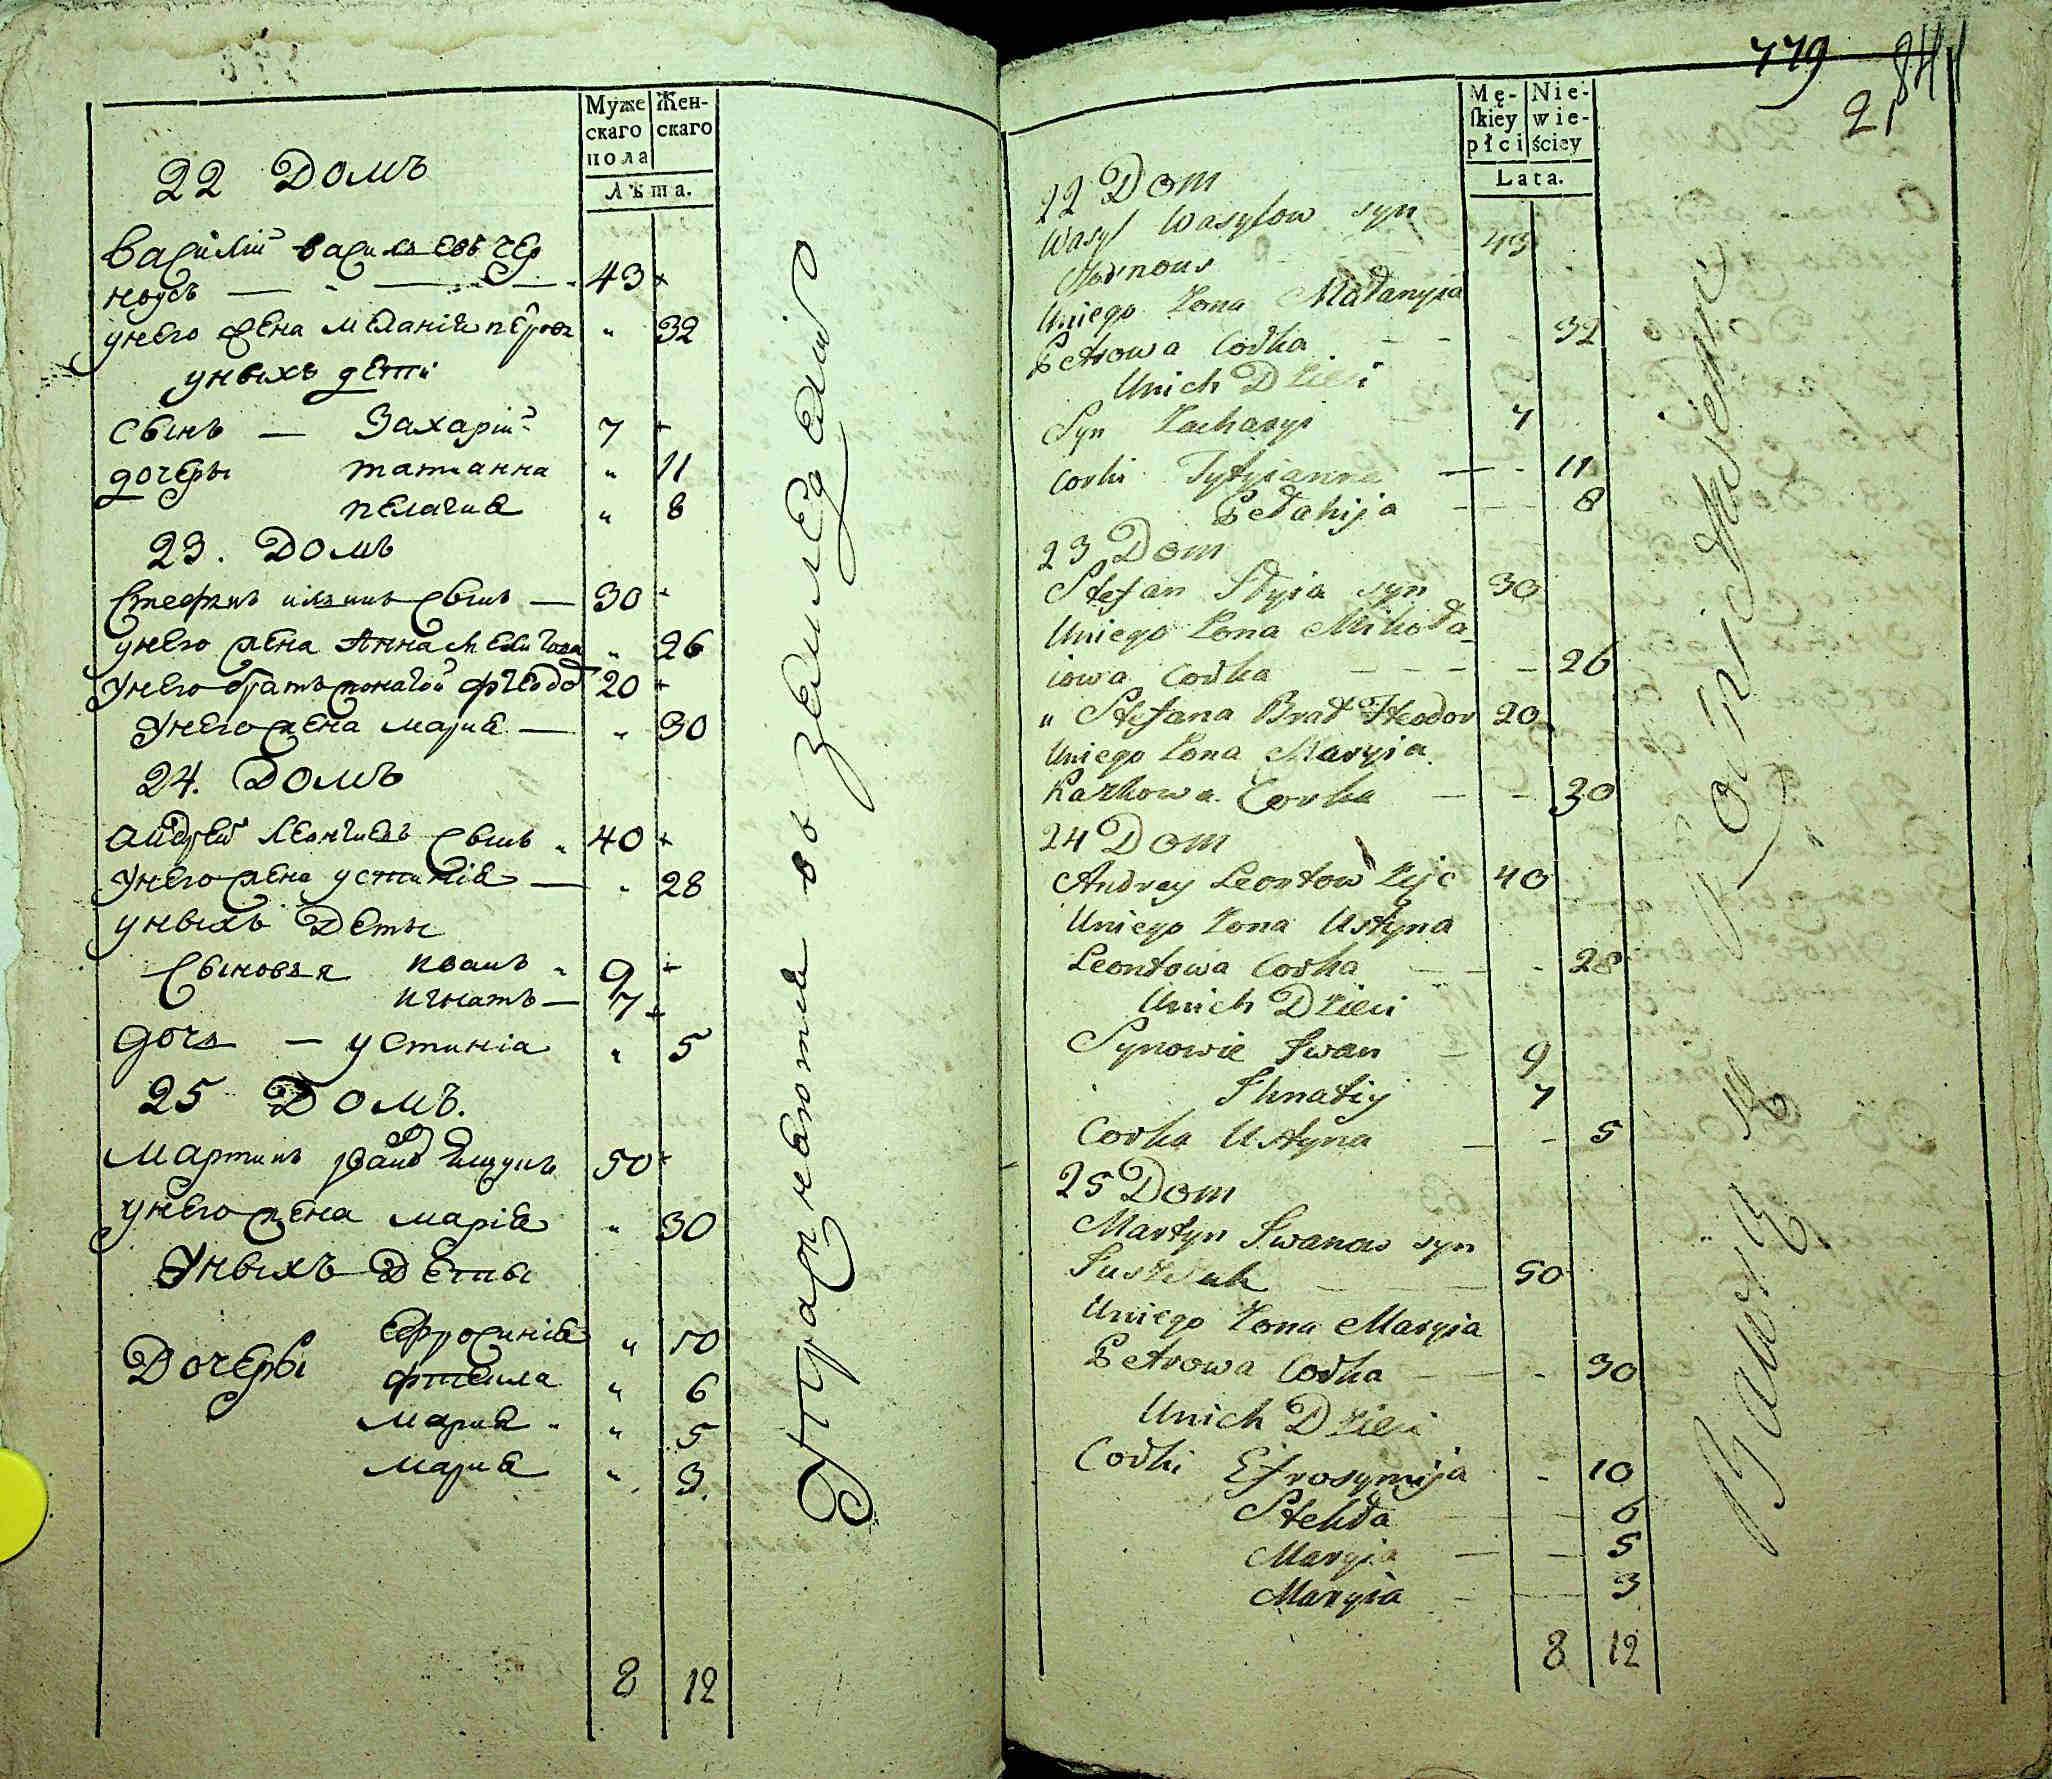 Муже
скаго
пола
Жен-
скаго
Лѣта.
22 Домъ
Василій Васильевъ Чер
ноусъ — — — 43
унего жена Меланія петрова " 32
унихъ дети
Сынъ — Захарій 7
дочеры татианна " 11
пелагия " 8
23. Домъ
Стефанъ илинъ сынъ — 30
унего жена Анна " 26
Унего братъ 20
Унего жена мария — " 30
24. Домъ
андрей Леонтиевъ сынъ " 40
Унего жена устиниа — " 28
унихъ Деты
Сыновья иванъ " 9
игнатъ — 7
дочь — устиніа " 5
25 Домъ.
Мартинъ 50
унего жена маріа " 30
Унихъ Деты
Дочеры Ефросиніа " 10
" 6
Мариа " " 5
Мариа " 3.
8 12
Упражняются въ земледелии
779
841
2
Mę-
skiey
płci
Nie-
wie-
ściey
Lata.
22 Dom
Wasyl Wasylow syn
Czornous 43
Uniego Zona Małanyia
Petrowa Corka - - - 32
Unich Dzieci
Syn Zacharyi 7
Corki Tytyianna — - 11
Pełahija — — 8
23 Dom
Stefan Iłyia syn 30
Uniego Zona Mikoła-
iowa Corka — — — 26
" Stefana Brat Fteodor 20
Uniego Zona Maryia
Karkowa Corka — - 30
24 Dom
Andrey Leontow 40
Uniego Zona Ustyna
Leontowa Corka — — - 28
Unich Dzieci
Synowie Iwan — 9
Ihnatiy 7
Corka Ustyna — - 5
25 Dom
Martyn Iwanow syn
50
Uniego Zona Maryia
Petrowa Corka — — - 30
Unich Dzieci
Corki Efrosymija - 10
Stehła 6
Maryia — — 5
Maryia — — 3
8 12
Bawią się Rolnictwem